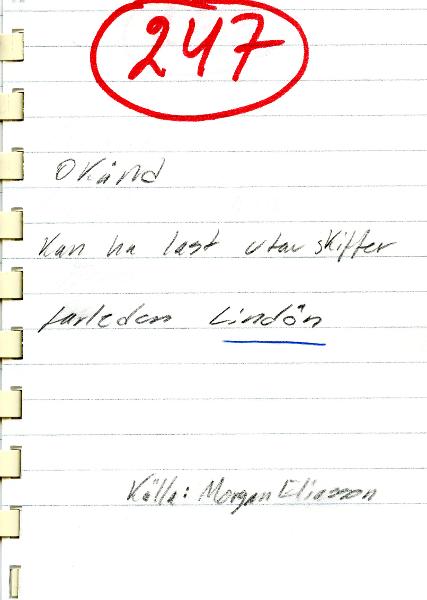 247
Okänd
Kan ha last utav skiffer
farleden Lindön
Källa: Morgan Eliasson